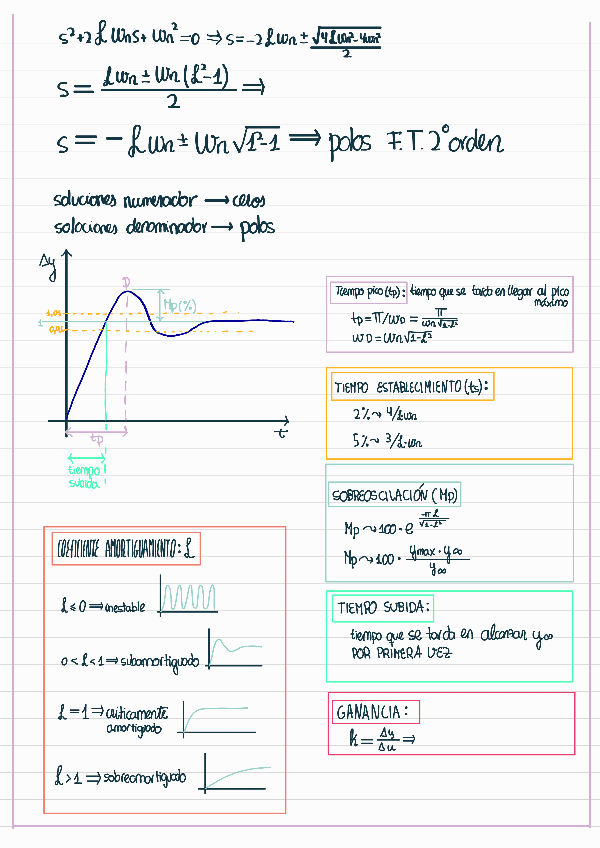 s²+2ℒWns+Wn²=0 ⇒ s=-2ℒWn ± √4ℒWn²-4Wn² / 2
s = ℒWn ± Wn(ℒ²-1) / 2 ⇒
s = -ℒWn ± Wn√ℒ²-1 ⇒ polos F.T. 2º orden
soluciones numerador → ceros
soluciones denominador → polos
Δy
P
Mp(%)
1
tp
t
tiempo
subida
Tiempo pico (tp): tiempo que se tarda en llegar al pico
máximo
tp = π/WD = π / Wn√1-ℒ²
WD = Wn√1-ℒ²
TIEMPO ESTABLECIMIENTO (ts):
2% ⤳ 4/ℒ·Wn
5% ⤳ 3/ℒ·Wn
SOBREOSCILACIÓN (Mp)
Mp ⤳ 100·e^(-πℒ / √1-ℒ²)
Mp ⤳ 100 · ymax · y∞ / y∞
TIEMPO SUBIDA:
tiempo que se tarda en alcanzar y∞
POR PRIMERA VEZ
GANANCIA:
k = Δy / Δu ⇒
COEFICIENTE AMORTIGUAMIENTO: ℒ
ℒ ≤ 0 ⇒ inestable
0 < ℒ < 1 ⇒ subamortiguado
ℒ = 1 ⇒ críticamente
amortiguado
ℒ > 1 ⇒ sobreamortiguado